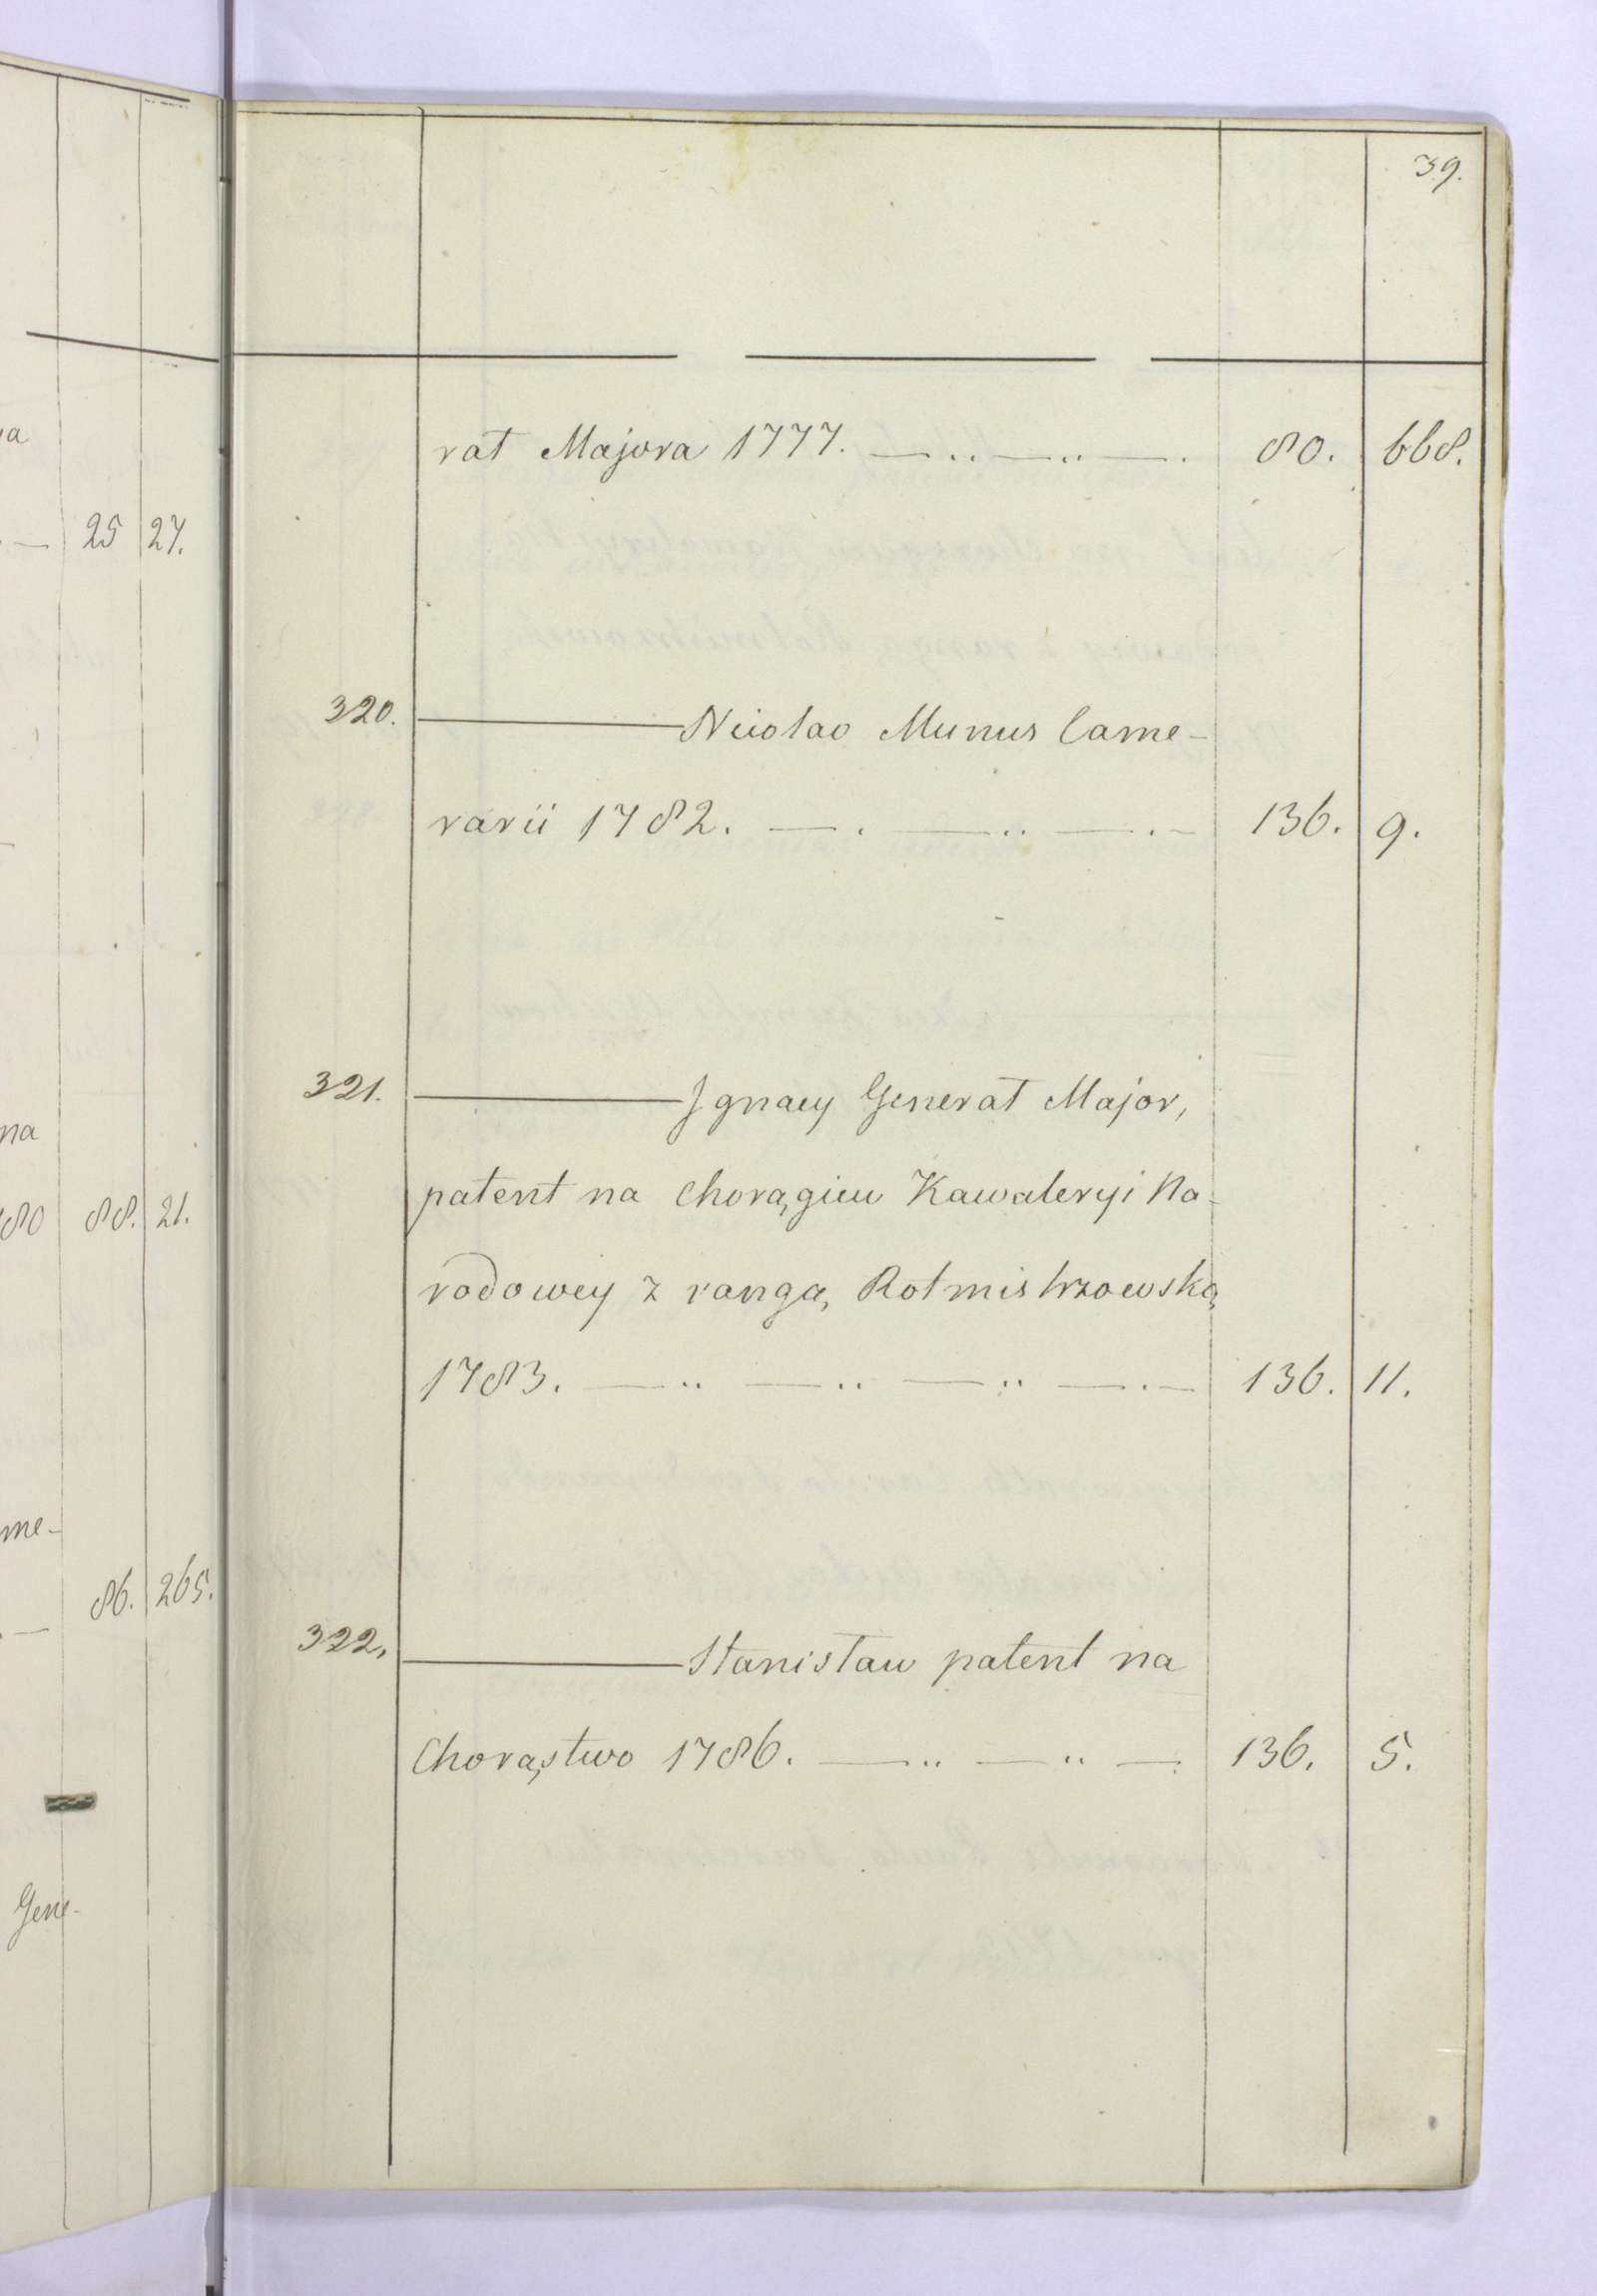 a
— 25 27.
na
80 88. 21.
me-
— 86. 265.
Gene-
39.
rat Majora 1777. — .. — .. — . 80. 668.
320. ——— Nicolao Munus Came-
rarii 1782. — . — .. — . — 136. 9.
321. ——— Ignacy Generał Major,
patent na Chorągiew Kawaleryi Na-
rodowey z rangą Rotmistrzowską
1783. — .. — .. — .. — . — 136. 11.
322. ——— Stanisław patent na
Chorąstwo 1786. — .. — .. — . 136. 5.